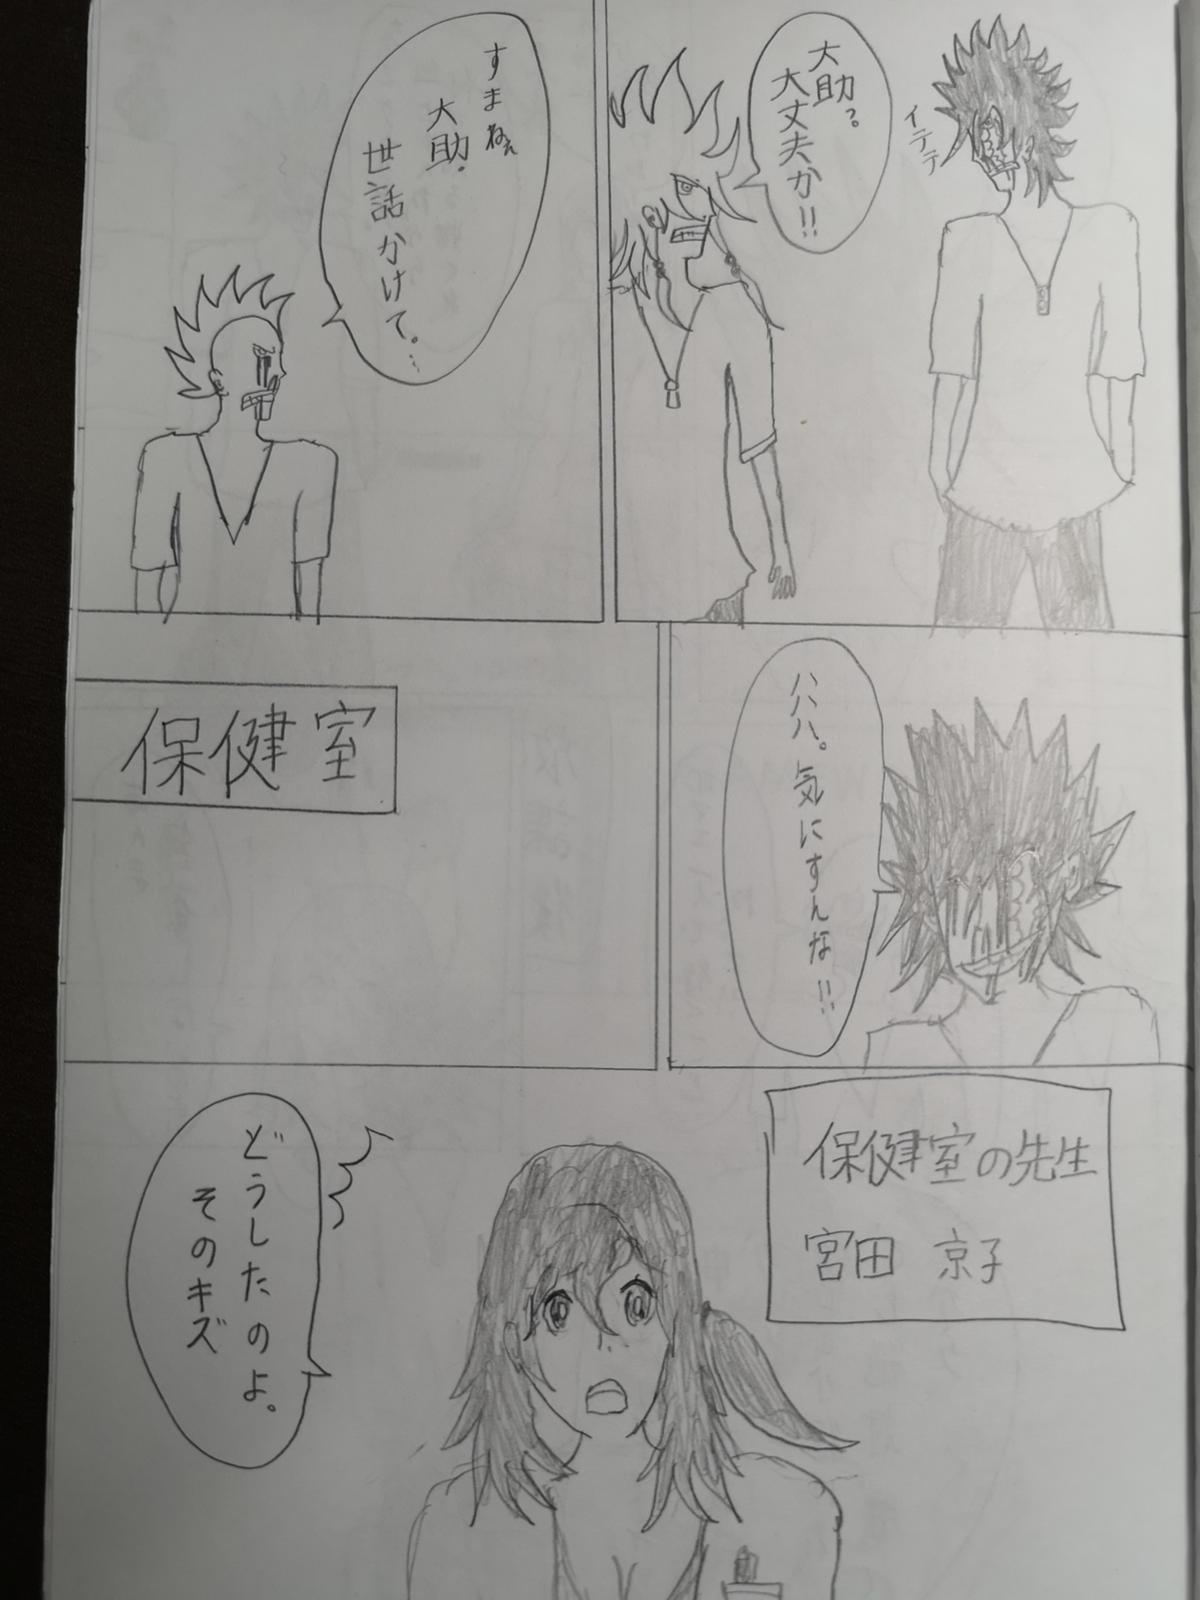 イテテ
大助?。
大丈夫か!!
すまねぇ
大助。
世話かけて。…
ハハハ。気にすんな!!
保健室
保健室の先生
宮田 京子
どうしたのよ。
そのキズ